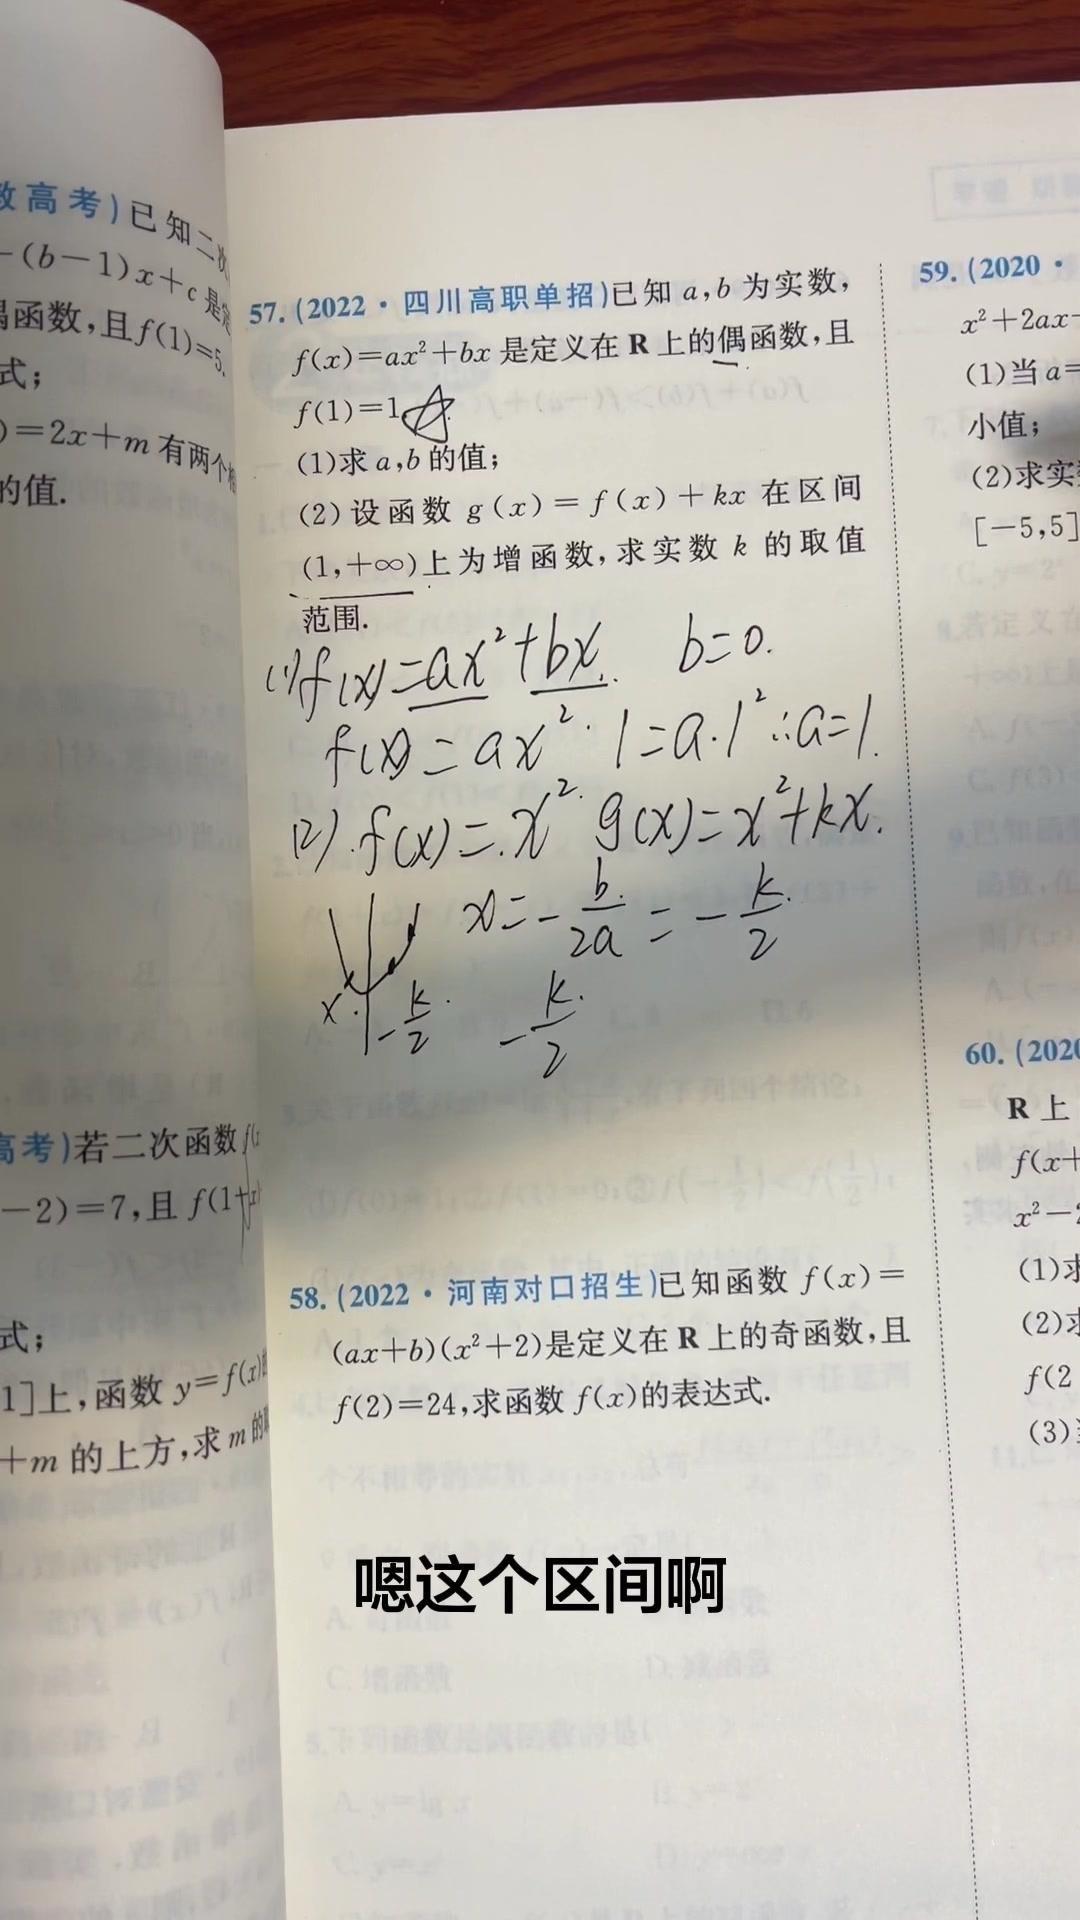 数高考)已知二次
-(b-1)x+c是定
偶函数,且f(1)=5.
式;
)=2x+m有两个相
的值.
高考)若二次函数f(x
-2)=7,且f(1+x)
式;
1]上,函数y=f(x)的
+m的上方,求m的取
57.(2022·四川高职单招)已知a,b为实数,
f(x)=ax²+bx是定义在R上的偶函数,且
f(1)=1.
(1)求a,b的值;
(2)设函数g(x)=f(x)+kx在区间
(1,+∞)上为增函数,求实数k的取值
范围.
(1)f(x)=ax²+bx. b=0.
f(x)=ax². 1=a·1² ∴a=1.
(2).f(x)=x². g(x)=x²+kx.
x=-b/2a=-k/2
x. -k/2 -k/2
58.(2022·河南对口招生)已知函数f(x)=
(ax+b)(x²+2)是定义在R上的奇函数,且
f(2)=24,求函数f(x)的表达式.
59.(2020·
x²+2ax-
(1)当a=
小值;
(2)求实
[-5,5]
60.(2020
R上
f(x+
x²-2
(1)求
(2)求
f(2
(3)
嗯这个区间啊